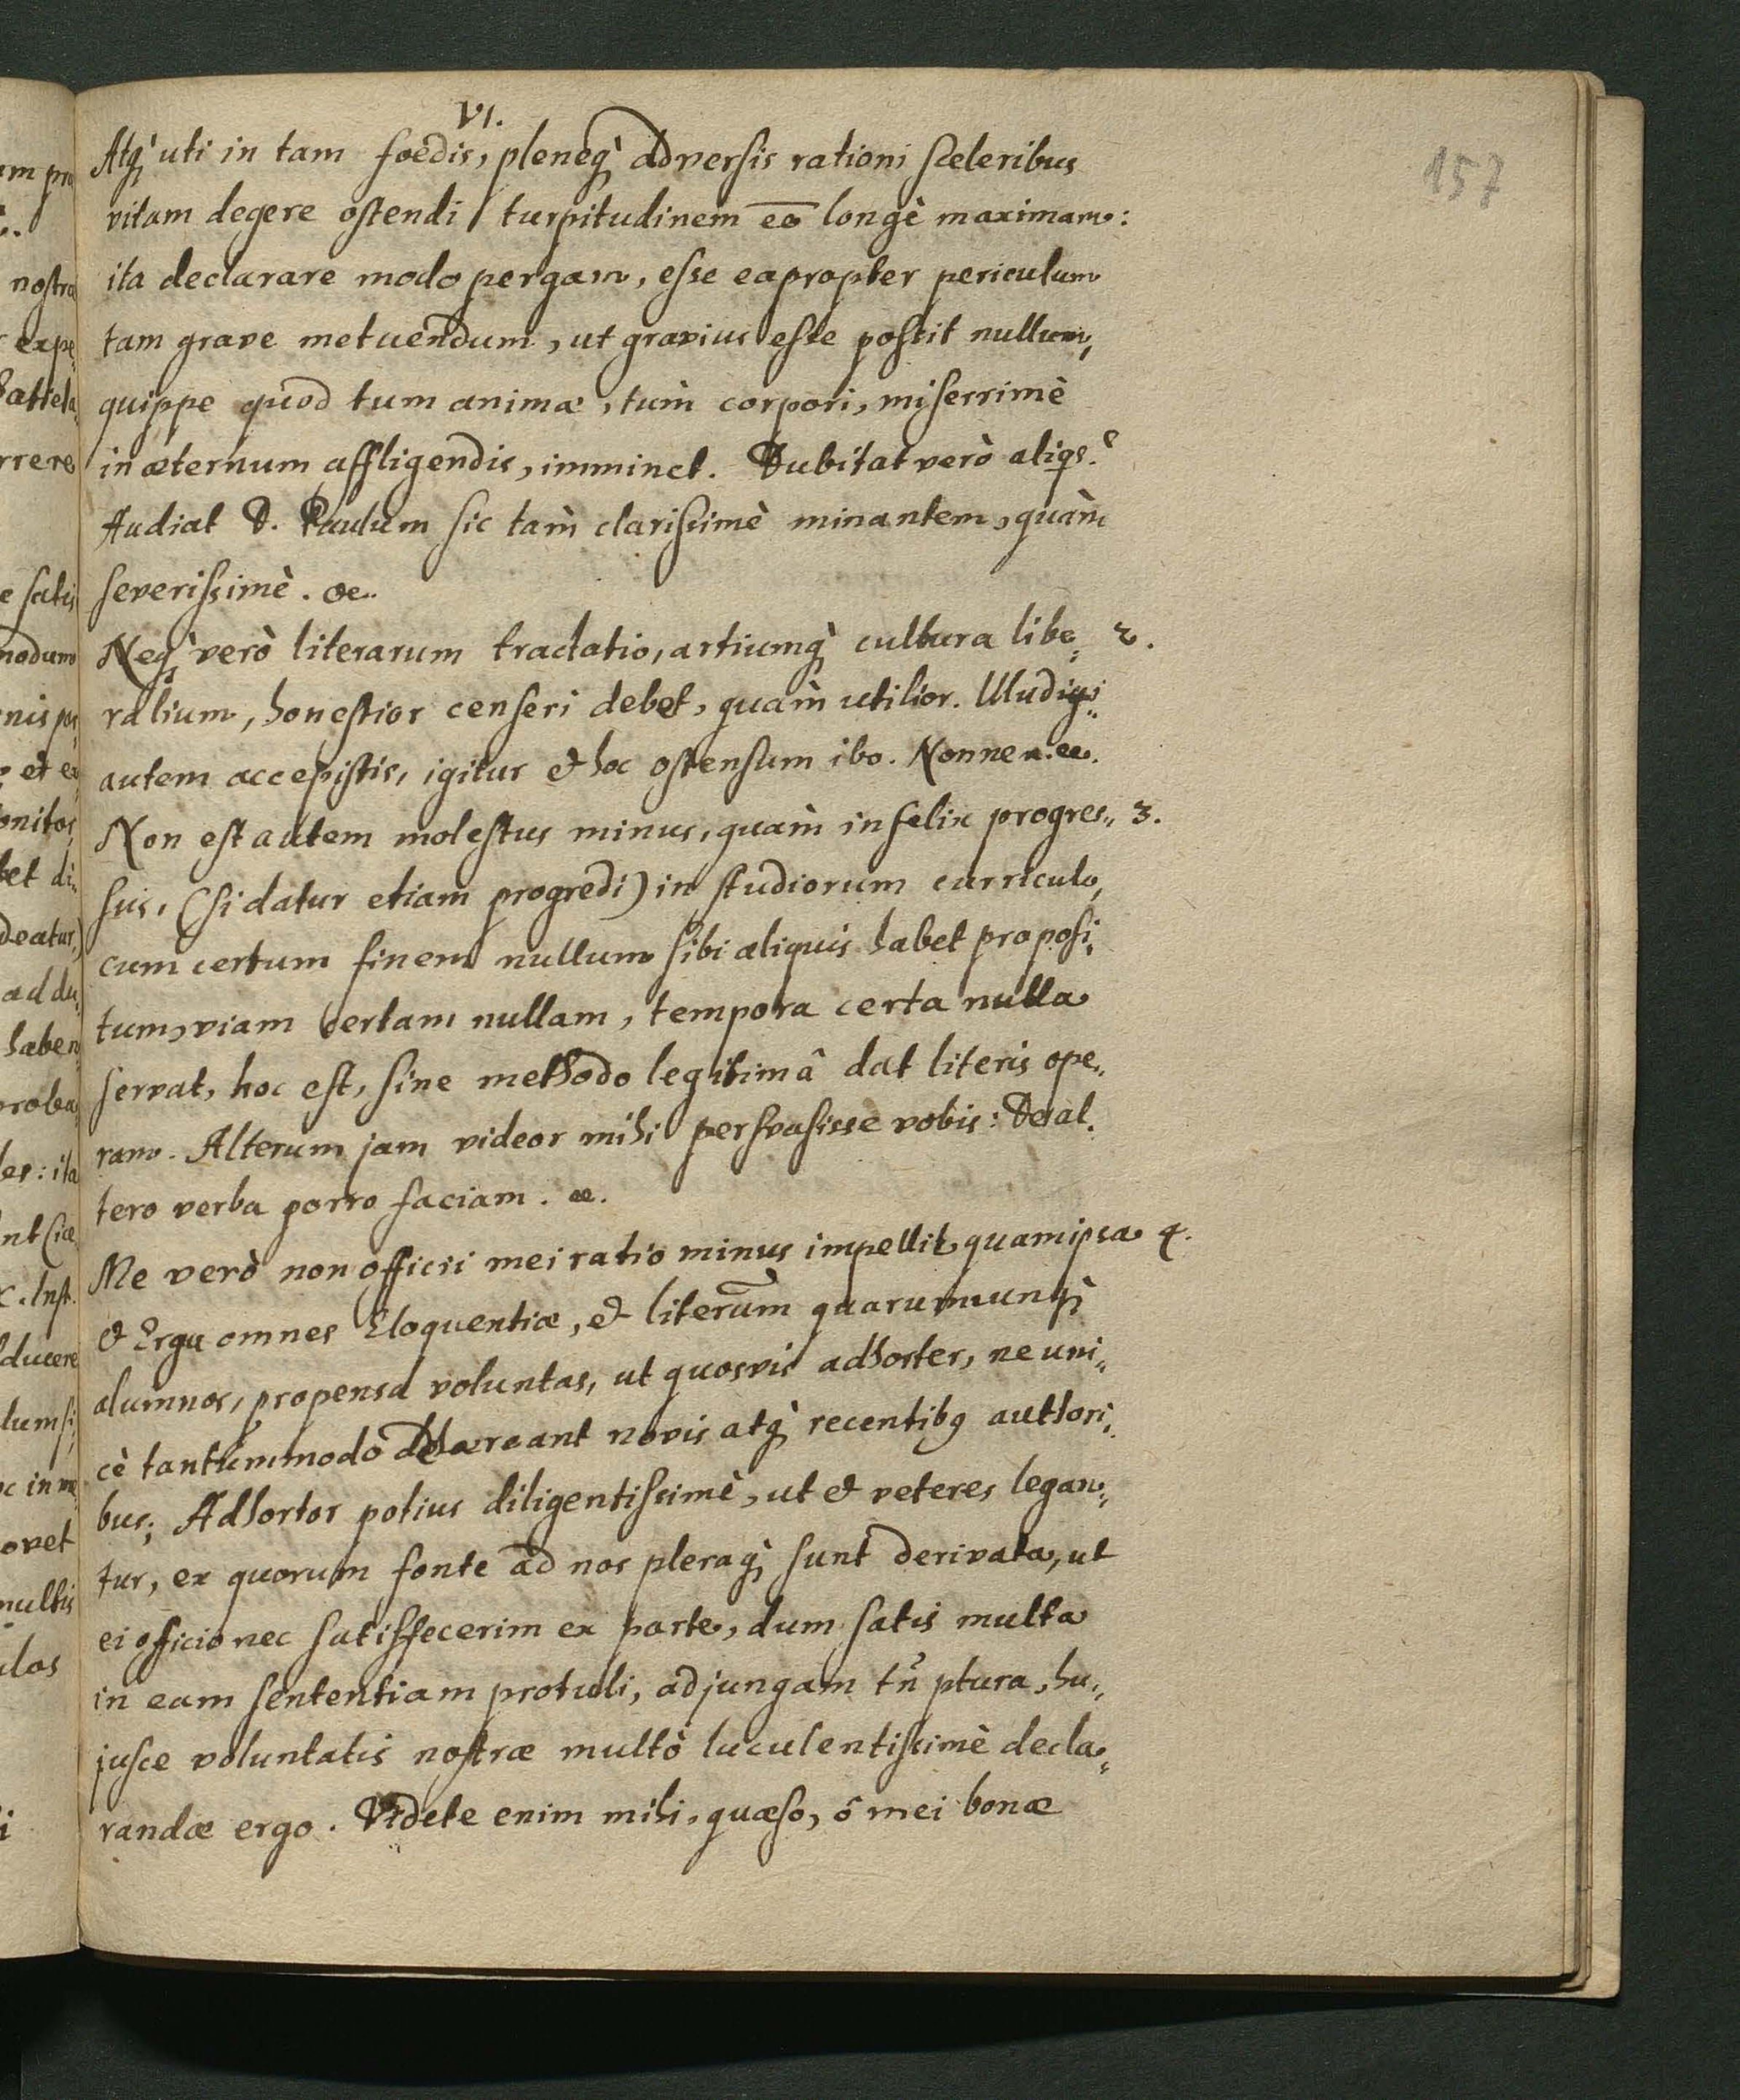 VI.
157
Atq̀ uti in tam foedis, pleneq̀ adversis rationi sceleribus
vitam degere ostendi turpitudinem eē longè maximam:
ita declarare modo pergam, esse eapropter periculum
tam grave metuendum, ut gravius esse possit nullum,
quippe quod tum animæ, tùm corpori, miserrimè
in æternum affligendis, imminet. Dubitat verò aliqs?
Audiat D. Paulum sic tàm clarissimè minantem, quàm
severissimè. &c.
Neq̀ verò literarum tractatio, artiumq̀ cultura libe„ 2.
ralium, honestior censeri debet, quàm utilior. Illud
autem accepistis, igitur & hoc ostensum ibo. Nonne
Non est autem molestus minus, quàm infelix progres„ 3.
sus, (si datur etiam progredi) in studiorum curriculo,
cum certum finem nullum sibi aliquis habet proposi„
tum, viam certam nullam, tempora certa nulla
servat, hoc est, sine methodo legitimâ dat literis ope„
ram. Alterum jam videor mihi persvasisse vobis: De al„
tero verba porro faciam. &c.
Me verò non officii mei ratio minus impellit quam ipsa 4.
& Erga omnes Eloquentiæ, & literarum quarumcunq̀
alumnos, propensa voluntas, ut quosvis adhorter, ne uni„
cè tantùmmodo adhæreant novis atq̀ recentibq authori„
bus; Adhortor potius diligentissimè, ut & veteres legan„
tur, ex quorum fonte ad nos pleraq̀ sunt derivata, ut
ei officio nec satisfecerim ex parte, dum satis multa
in eam sententiam protuli, adjungam tñ plura, hu„
jusce voluntatis nostræ multò luculentissimè decla„
randæ ergo. Videte enim mihi, quæso, ô mei bonæ